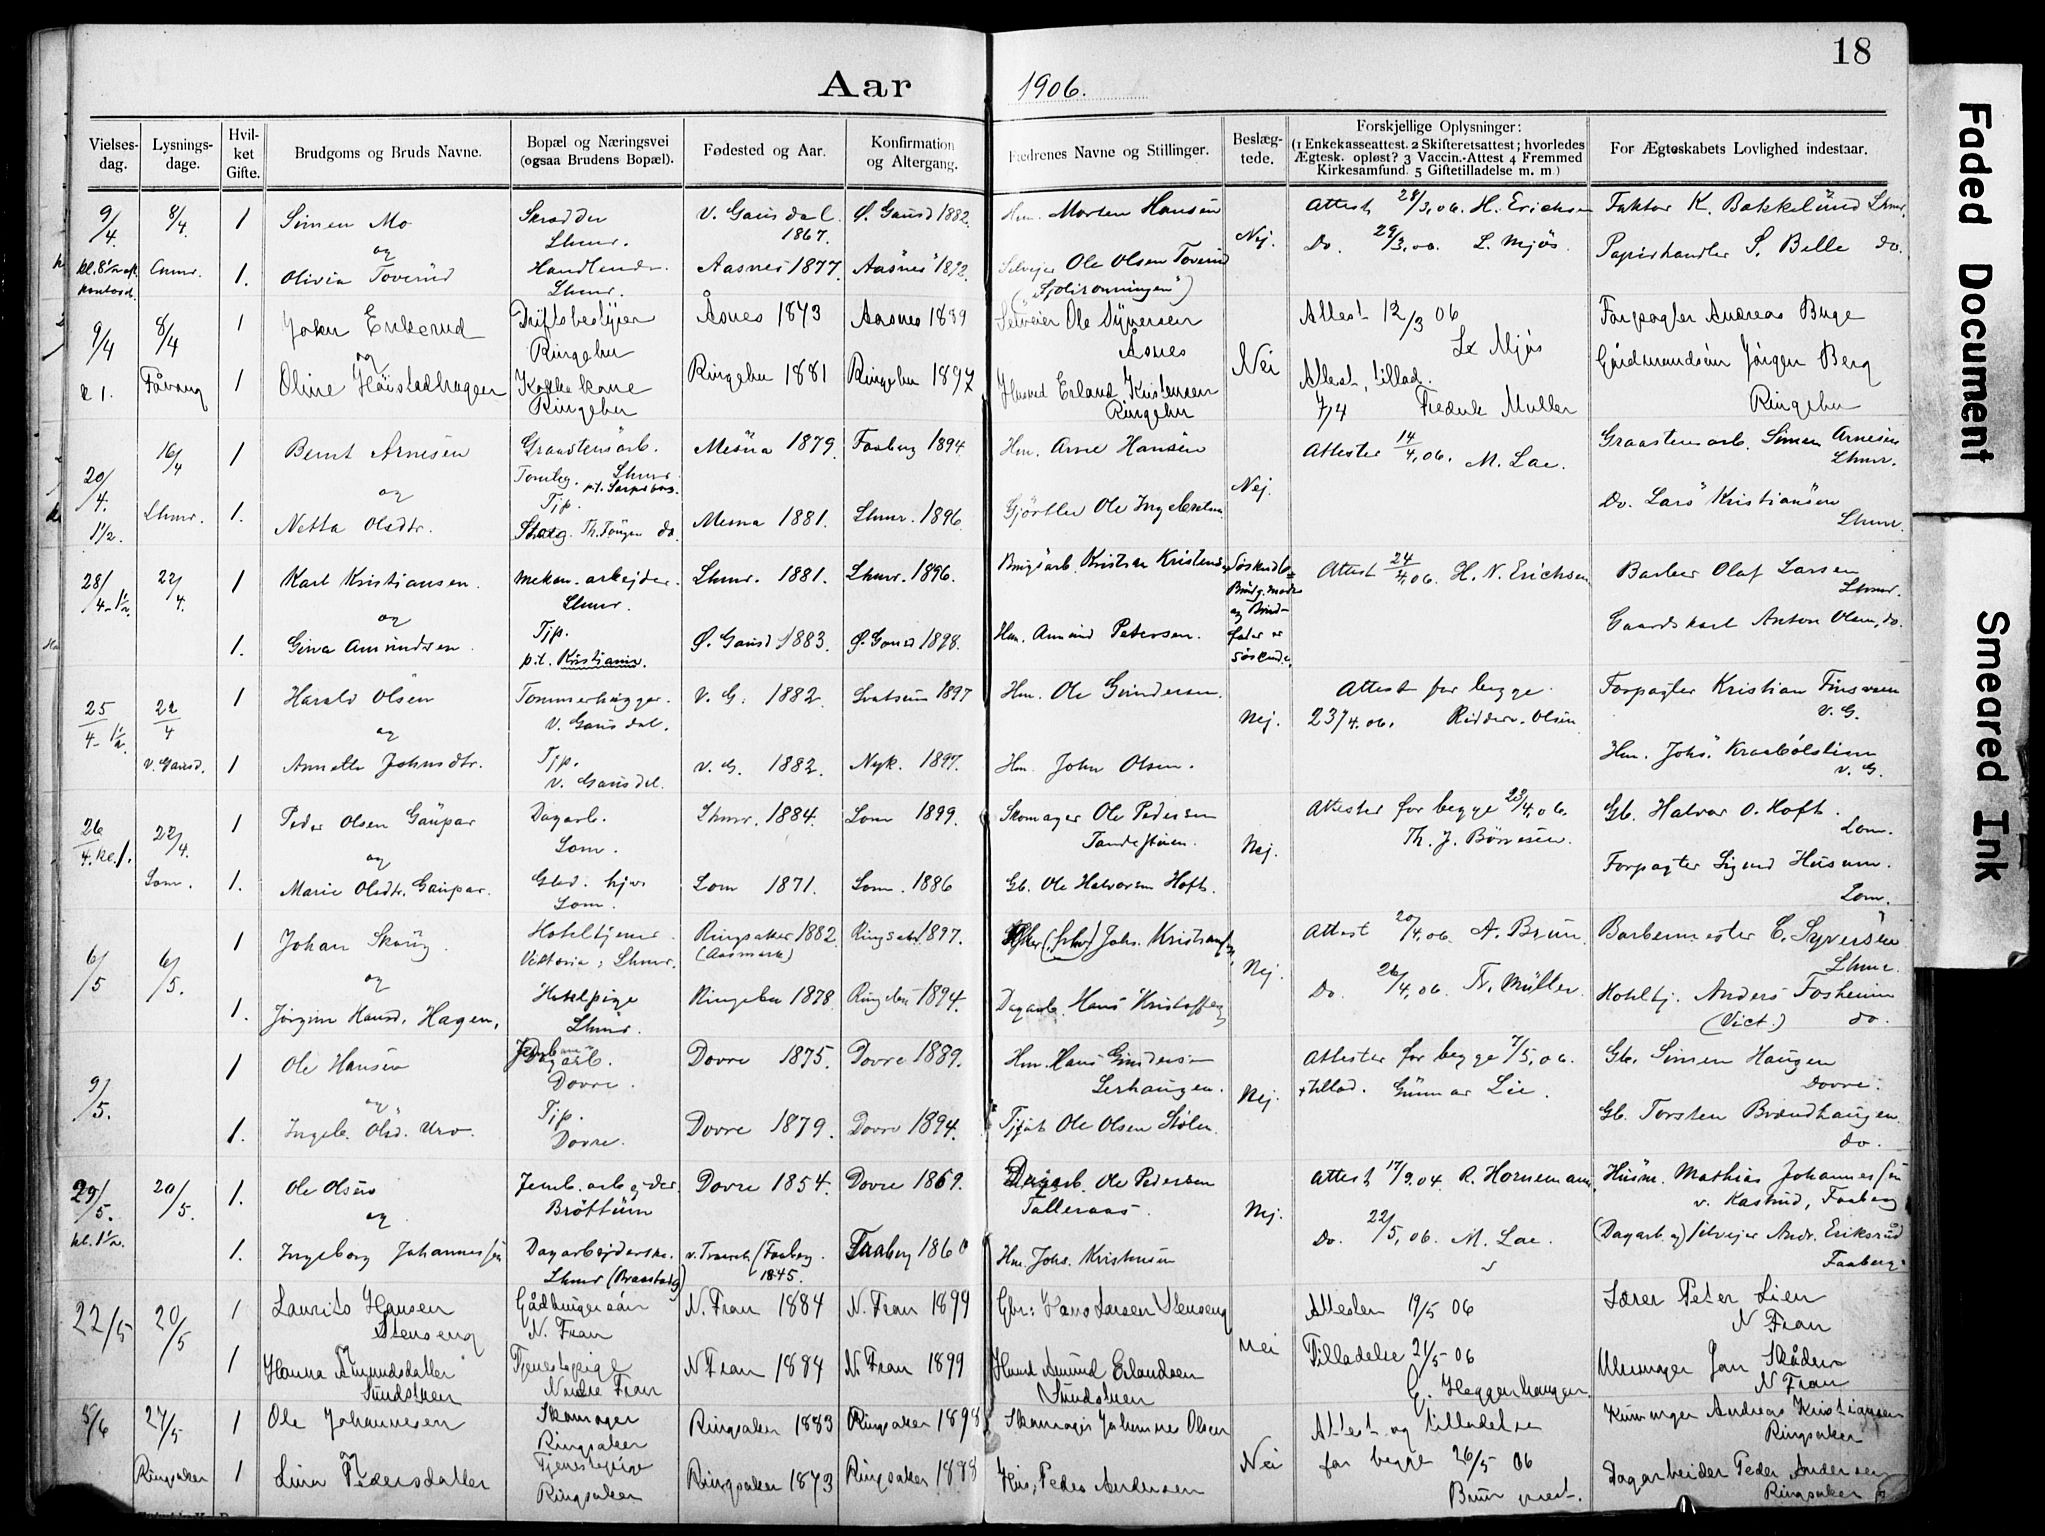 18
Aar 1906.
Vielses-dag.
Lysnings-dage.
Hvil-ket Gifte.
Brudgoms og Bruds Navne.
Bopæl og Næringsvei (ogsaa Brudens Bopæl).
Fødested og Aar.
Konfirmation og Altergang.
Fædrenes Navne og Stillinger.
Beslæg-tede.
Forskjellige Oplysninger: (1 Enkekasseattest. 2 Skifteretsattest; hvorledes Ægtesk. opløst? 3 Vaccin.-Attest 4 Fremmed Kirkesamfund. 5 Giftetilladelse m. m.)
For Ægteskabets Lovlighed indestaar.
9/4. 8/4. 1 Simen Mo Skrædder V. Gausdal Ø. Gausd 1882. Hm. Morten Hansen Attest 28/3.06. H. Erichsen Faktor K. Bakkelund Lhmr.
og Lhmr. 1867. Nej. Do. 29/3.06. L. Mjøs. Papirhandler S. Belle do.
1. Olivia Toverud Handlende. Aasnes 1877. Aasnes 1892 Selvejer Ole Olsen Toverud
Lhmr.
9/4 8/4 1 John Enkerud Driftsbestyrer Åsnes 1873 Aasnes 1889 Selveier Ole Syversen Attest 12/3 06 Forpagter Andreas Buge
og Ringebu Åsnes Nei L Mjøs Gårdmandsøn Jörgen Berg
Fåvang 1 Oline Høistadhagen Kokkekone Ringebu 1881 Ringebu 1897 Husmd Erland Kristensen Attest, tillad. Ringebu
Ringebu Ringebu 7/4 Fredrik Muller
16/4 1 Bernt Arnesen Graastensarb. Mesna 1879. Faaberg 1894 Hm. Arne Hansen Attester 14/4.06. M. Lae. Graastensarb. Simen Arnesen
20/4. og Lhmr. Nej. Lhmr.
1 1/2. Lhmr. 1. Netta Olsdtr. Tjp. Mesna 1881. Lhmr. 1896. Gjørtler Ole Ingebretsen Do. Lars Kristiansen
Lhmr.
28/4-1 1/2 22/4. 1 Karl Kristiansen. mekan. arbejder. Lhmr. 1881. Lhmr. 1896. Brugsarb. Kristian Kristensen Attest 24/4.06. H. N. Erichsen Barber Olaf Larsen
og Lhmr. Lhmr.
1. Gina Amundsen. Tjp. Ø. Gausd 1883. Ø. Gausd 1898. Hm. Amund Petersen. Gaardskarl Anton Olsen, do.
p.t. Kristiania.
25/4-1 1/2. 22/4 1 Harald Olsen Tømmerhugger. V. G. 1882. Svatsum 1897 Hm. Ole Gundersen. Attest for begge Forpagter Kristian
og V. Gausdal. Nej. 23/4.06. Ridder-Olsen V. G.
V. Gausd. 1 Annette Johnsdtr. Tjp. V. G. 1882. Nyk. 1897. Hm. John Olsen. Hm. Johs. Kraabølstien
V. Gausdal. V. G.
26/4. kl. 1. 22/4. 1 Peder Olsen Gaupar Dagarb. Lhmr. 1884. Lom 1899. Skomager Ole Pedersen Attester for begge 23/4.06. Gb. Halvor O. Hoft.
og Lom. Nej. Th. J. Børresen. Lom.
Lom. 1. Marie Olsdtr. Gaupar. Lom 1871. Lom. 1886 Gb. Ole Halvorsen Hoft. Forpagter Sigurd Husum.
Lom. Lom.
6/5 6/5. 1 Johan Skaug. Hoteltjener Ringsaker 1882. Ringsaker 1897. Johs. Kristiansen Attest 20/4.06. A. Brun. Barbermester C. Syversen
og Viktoria, Lhmr. (Aasmark) Nej. Lhmr.
1. Jørgine Hansd. Hagen. Hotelpige Ringebu 1878 Ringebu 1894. Dagarb. Hans Kristoffersen Do. 26/4.06. Fr. Müller. Hoteltj. Anders Fosheim
Lhmr. (Vict.) do.
9/5. 1 Ole Hansen Dagarb. Dovre 1875. Dovre 1889. Hm. Hans Gundersen Attester for begge 7/5.06. Gb. Simen Haugen
og Dovre. Lerhaugen. Nej. + tillad. Gunnar Lie. Dovre.
1. Ingeb. Olsd. Uro. Tjp. Dovre 1879. Dovre 1894. Ole Olsen Stølen Gb. Torsten Brændhaugen
Dovre. do.
29/5. 20/5. 1. Ole Olsen Jernb. arbejder. Dovre 1854. Dovre 1869. Dagarb. Ole Pedersen Attest 17/9.04. R. Hornemann. Husm. Mathias Johannessen
kl. 1 1/2. og Brøttum Talleraas. Nej. v. Kastrud, Faaberg
1. Ingeborg Johannessen Dagarbejderske. Faaberg. Faaberg 1860 Hm. Johs. Kristensen Do. 22/5.06. M. Lae. (Dagarb. og) selvejer Andr. Eriksrud
Lhmr (Braastad) 1845. Faaberg.
22/5 20/5 1 Laurits Hansen Gådbrugersøn N. Fron 1884 N. Fron 1899 Gbr: Hans Larsen Stenseng Attester 19/5 06 Lærer Peter Lien
Stenseng N. Fron Nei N Fron
og 1 Hanna Amundsdatter Tjenestepige N. Fron 1884 N. Fron 1899 Husmd Amund Erlandsen Tilladelse 21/5 06 Uhrmager Jan Skåden
Sundstuen Nordre Fron Sundstuen G. Heggenhaugen. N Fron
5/6 27/5 1 Ole Johannesen Skomager Ringsaker 1883 Ringsaker 1898 Skomager Johannes Olsen Attest og tilladelse Andreas Kristiansen
og Ringsaker Nei Ringsaker
Ringsaker 1 Lina Pedersdatter Tjenestepige Ringsaker 1873 Ringsaker 1888 Peder Andersen for begge 26/5 06 Dagarbeider Peder Andersen
Ringsaker Brun prest. Ringsaker
Faded Document
Smeared Ink